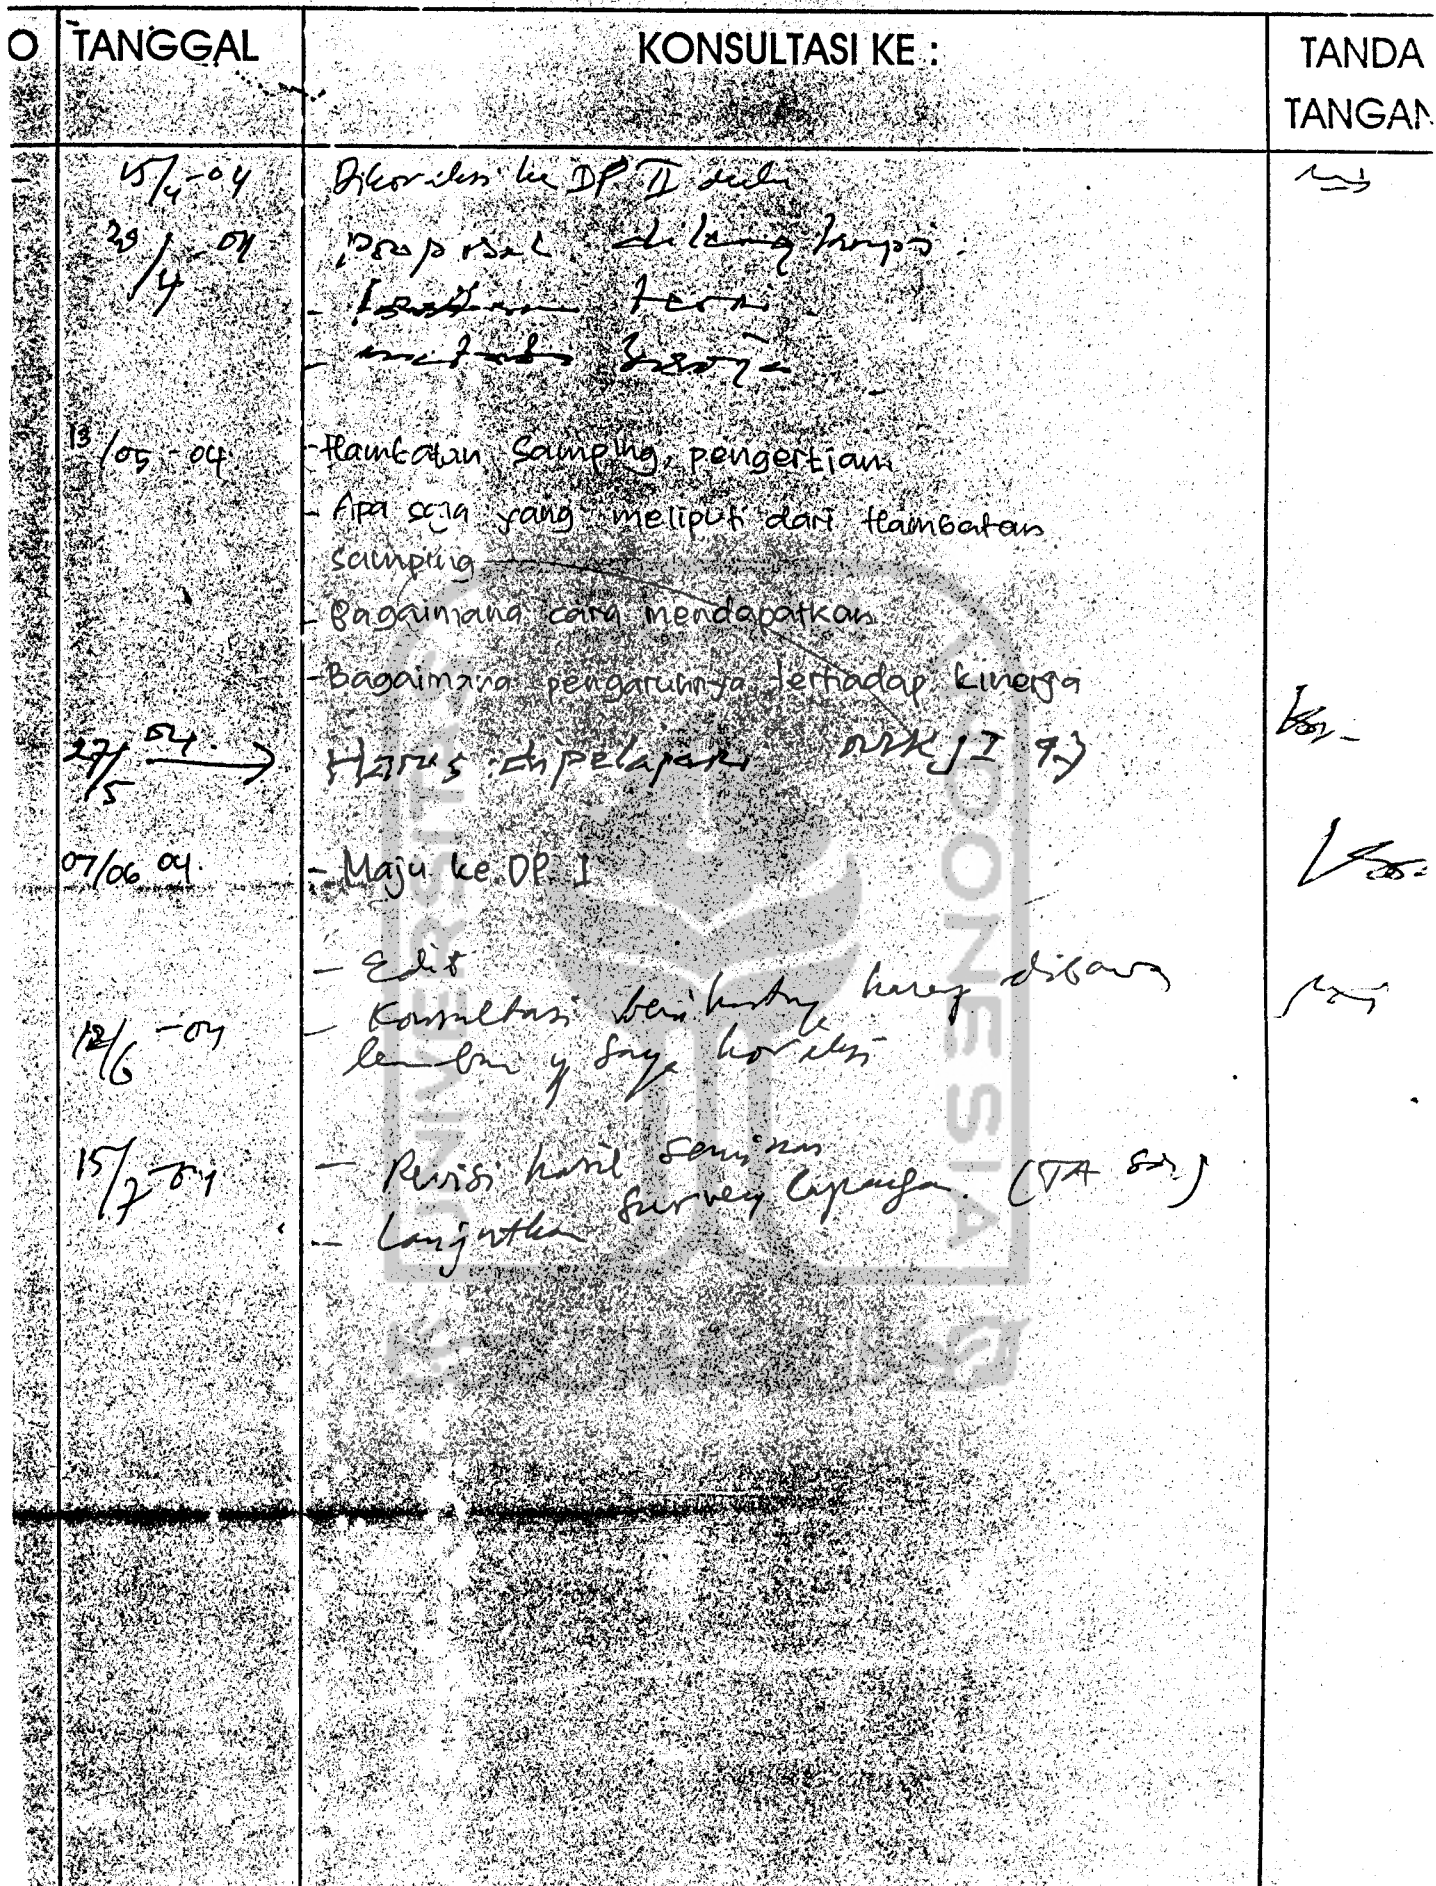 O TANGGAL KONSULTASI KE : TANDA
TANGAN
15/4-04 Dikoreksi ke DP II dulu
29/4-04 Proposal dilengkapi :
- teori
- metode kerja
13/05-04 - Hambatan Samping, pengertian
- Apa saja yang meliputi dari Hambatan
samping
- Bagaimana cara mendapatkan
- Bagaimana pengaruhnya terhadap kinerja
27/5 04. Harus dipelajari MKJI 97
07/06 04. - Maju ke DP. I
- Edit
12/6-04 - Konsultasi berikutnya harus dibawa
lembar yg saya koreksi
15/7-04 - Revisi hasil seminar
- Lanjutkan survey lapangan. (TA
UNIVERSITAS
INDONESIA